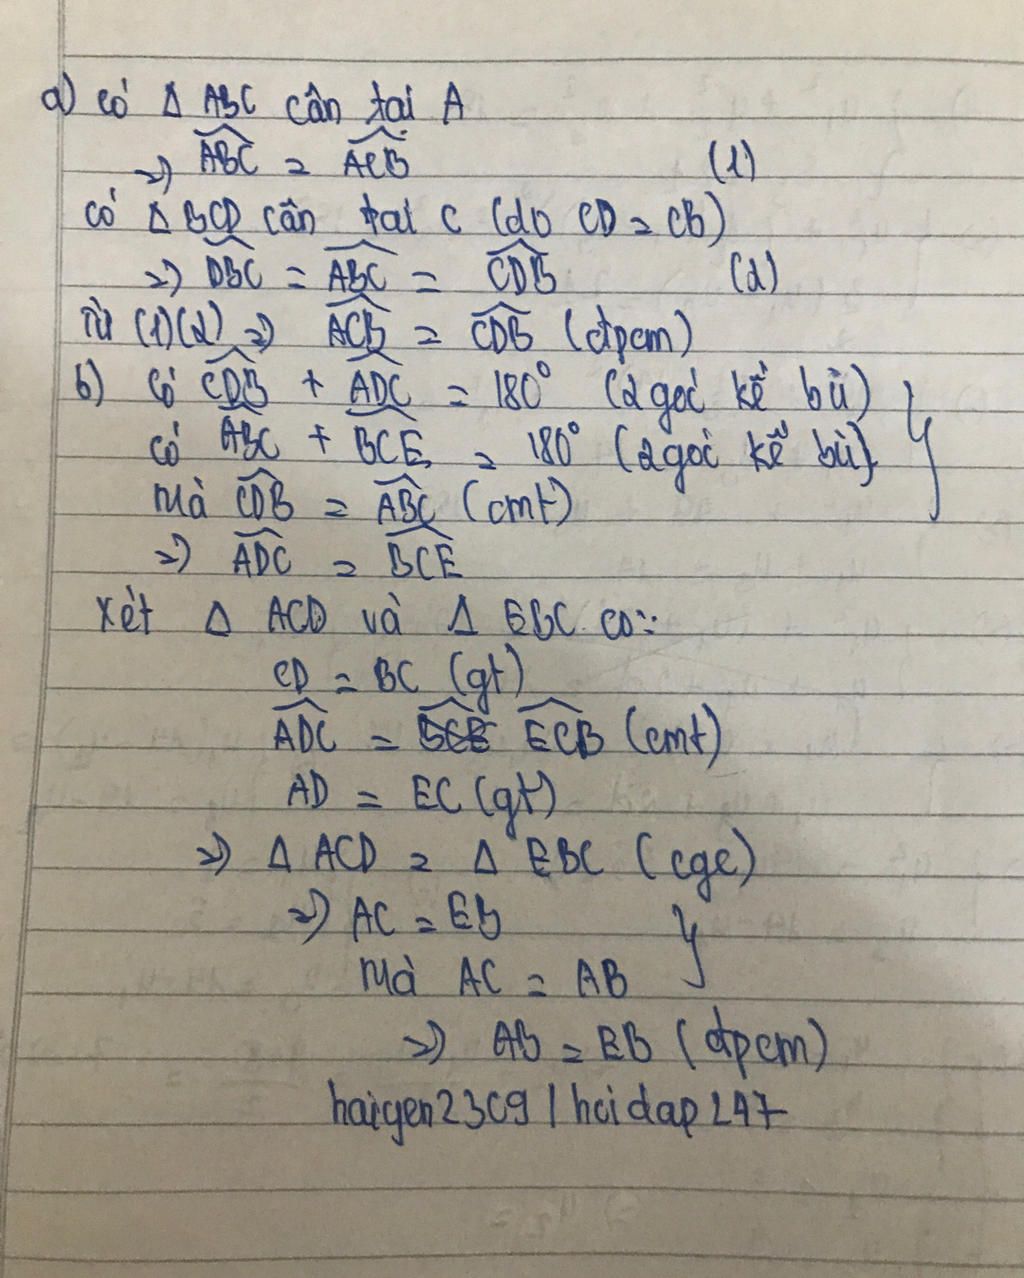 a) có Δ ABC cân tại A
=> ABC = ACB (1)
có Δ BCD cân tại C (do CD = CB)
=> DBC = ABC = CDB (2)
Từ (1)(2) => ACB = CDB (đpcm)
b) Có CDB + ADC = 180° (2 góc kề bù)
có ABC + BCE = 180° (2 góc kề bù)
Mà CDB = ABC (cmt)
=> ADC = BCE
Xét Δ ACD và Δ EBC có:
CD = BC (gt)
ADC = ECB (cmt)
AD = EC (gt)
=> Δ ACD = Δ EBC (cgc)
=> AC = EB
Mà AC = AB
=> AB = EB (đpcm)
haigen2309 / hoidap247